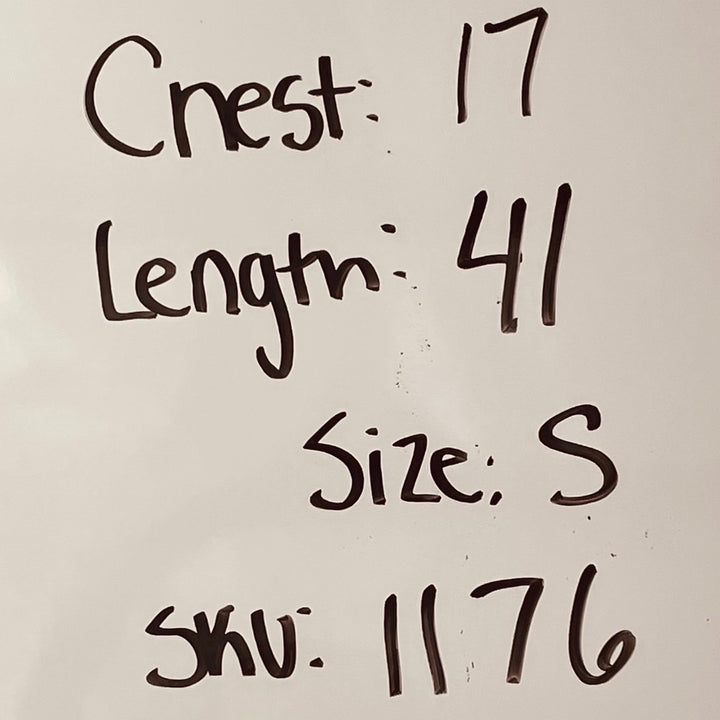 Chest: 17
Length: 41
Size: S
SKU: 1176